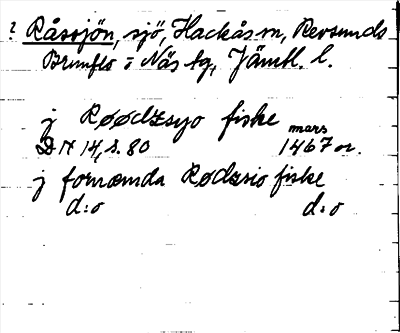 ? Råssjön, sjö, Hackås sn, Revsunds
Brunflo o Näs tg, Jämtl. l.
j Røødzsyo fiske
DN 14, s. 80 mars 1467 or.
j fornæmda Rødzsio fiske
d:o d:o